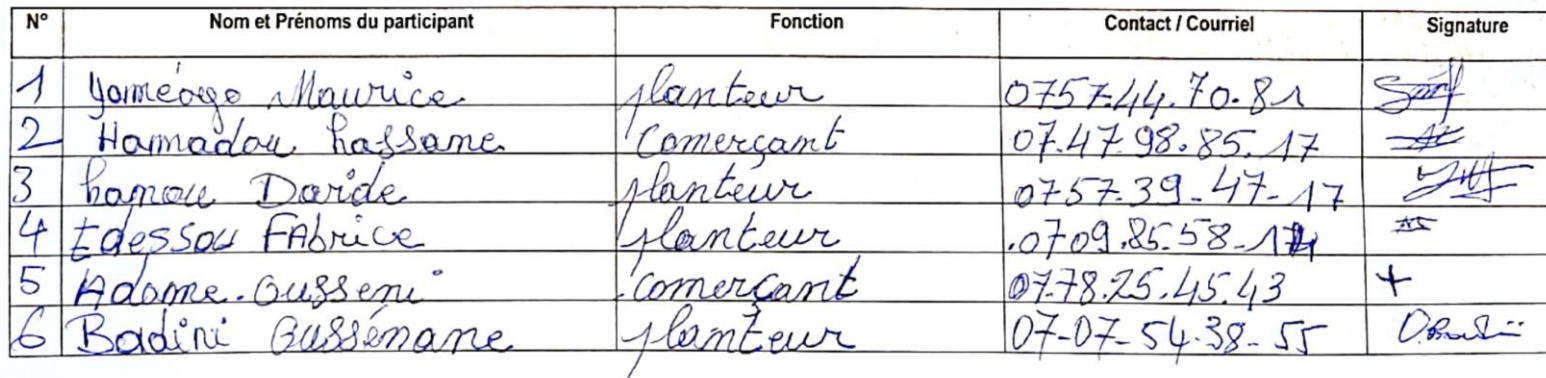 N° Nom et Prénoms du participant Fonction Contact / Courriel Signature
1 Yaméogo Maurice planteur 0757.44.70.81
2 Hamadou Lassane Comerçant 07.47.98.85.17
3 Davide planteur 0757.39-47-17
4 Edessou FAbrice planteur .0709.85.58-
5 Adame.Ousseni comerçant 07.78.25.45.43 +
6 Badini Oussénane planteur 07-07-54-38-55